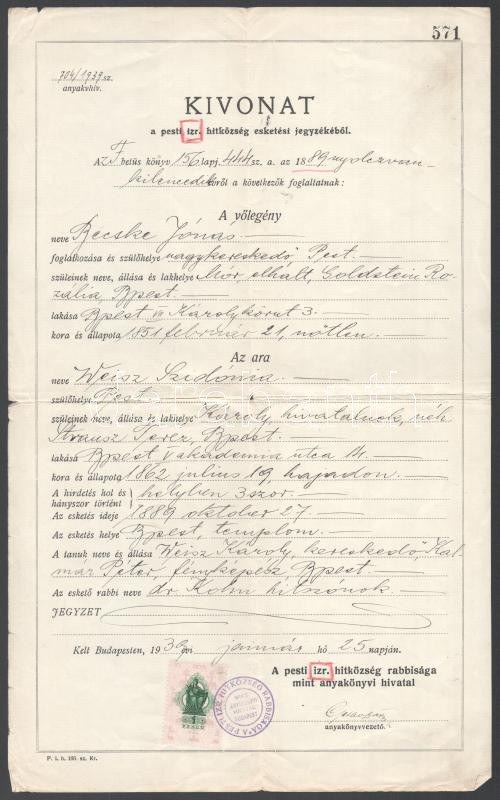 571
704/1939 sz.
anyakvhiv.
KIVONAT
a pesti izr. hitközség esketési jegyzékéből.
Az F betüs könyv 156 lapj. 444 sz. a. az 1889 nyolczvan-
kilencedik évről a következők foglaltatnak:
A vőlegény
neve Becske Jónás
foglalkozása és szülőhelye nagykereskedő, Pest
szüleinek neve, állása és lakhelye Mór, elhált, Goldstein Ro-
zália, Bpest.
lakása Bpest VII Károly körut 3.
kora és állapota 1851 február 21, nőtlen.
Az ara
neve Weisz Szidónia
szülőhelye Pest
szüleinek neve, állása és lakhelye Károly, hivatalnok, néh.
Strausz Terez, Bpest.
lakása Bpest V akadémia utca 14.
kora és állapota 1862 julius 19, hajadon.
A hirdetés hol és
hányszor történt } helyben 3szor.
Az esketés ideje 1889 oktober 27.
Az esketés helye Bpest, templom.
A tanuk neve és állása Weisz Károly, kereskedő, Kal-
már Péter fényképész Bpest
Az eskető rabbi neve dr. Kohn hitszónok.
JEGYZET
Kelt Budapesten, 1939 évi január hó 25 napján.
A pesti izr. hitközség rabbisága
mint anyakönyvi hivatal
anyakönyvvezető.
1
PENGŐ
A PESTI IZR. HITKÖZSÉG RABBISÁGA
F. i. h. 155. sz. Kr.